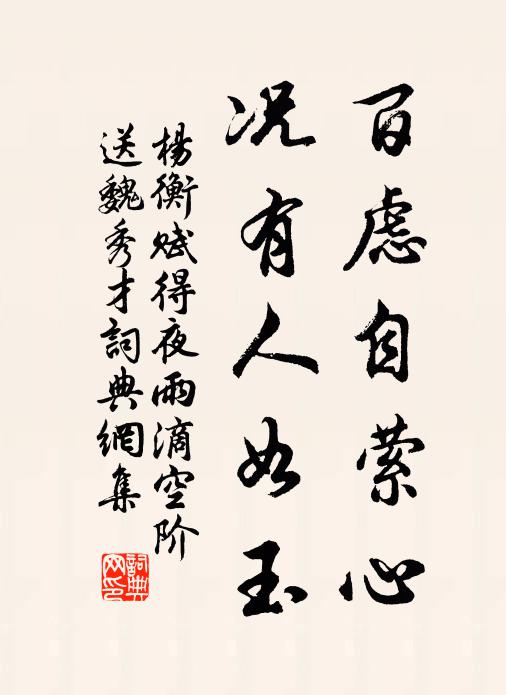 百虑自萦心
况有人如玉
杨衡赋得夜雨滴空阶
送魏秀才词典網集
詞典網印